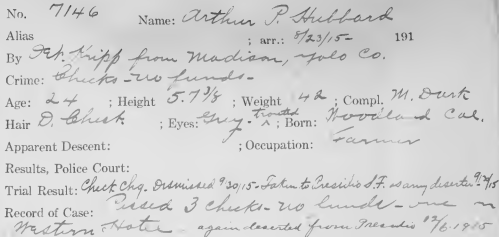 No. 7146 Name: Arthur P. Hubbard
Alias ; arr.: 8/23/15- 191
By Det. Kripp from Madison, Yolo Co.
Crime: Checks - no funds -
Age: 24 ; Height 5.7 3/8 ; Weight 142 ; Compl. M. Dark
Hair D. Chest ; Eyes: Grey- ; Born: Woodland Cal.
Apparent Descent: ; Occupation: Farmer
Results, Police Court:
Trial Result: Check Chg. Dismissed 9/30/15 - Taken to Presidio S.F. as army deserter
Record of Case: Passed 3 checks - no funds - one in
Western Hotel again deserted from Presidio 12/6-1915